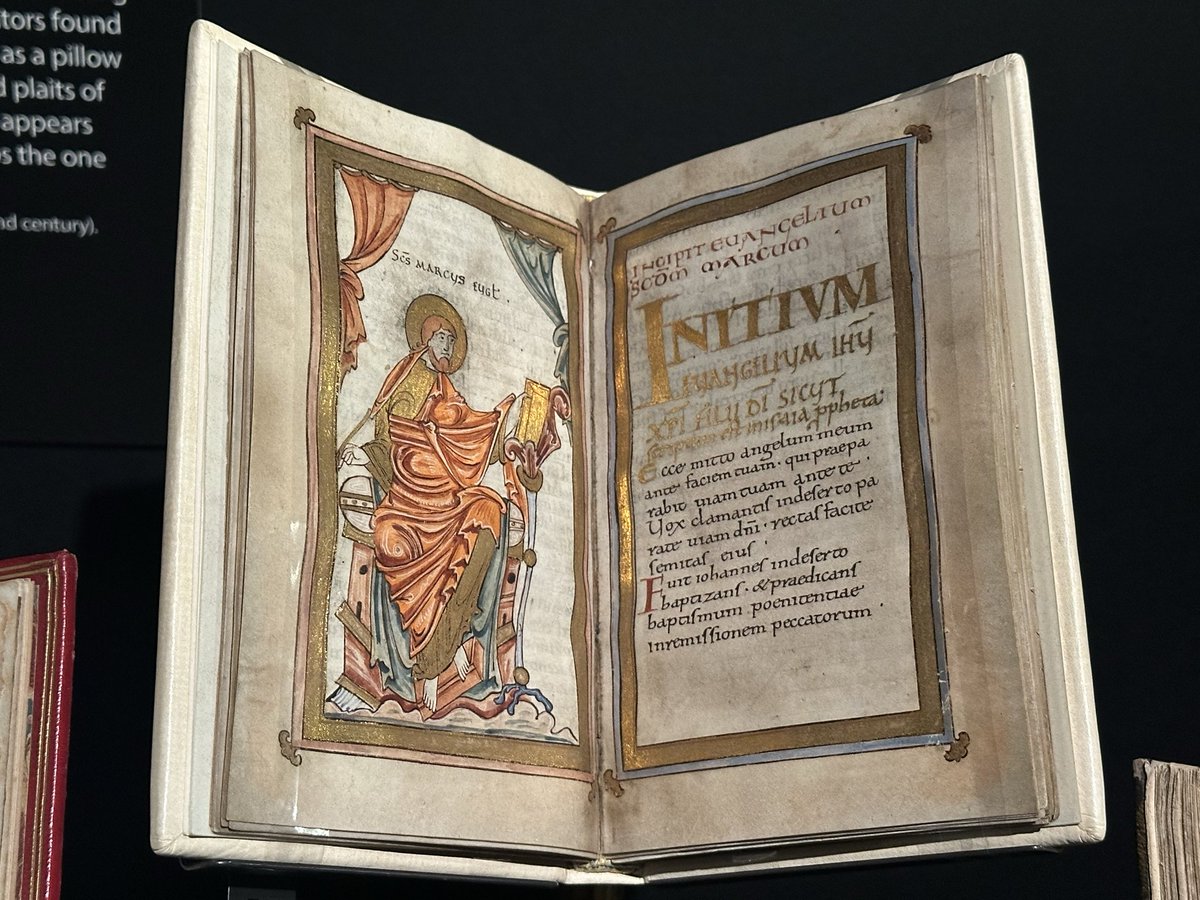 tors found
as a pillow
d plaits of
appears
s the one
nd century).
Sc̄s MARCUS EUGt̄ .
INCIPIT EUANGELIUM
SCDM̄ MARCUM
INITIVM
EUANGELIUM IHŪ
XPI FILII DĪ SICUT
scriptum est in isaia ppheta:
Ecce mitto angelum meum
ante faciem tuam · qui praepa
rabit uiam tuam ante te .
Uox clamantis indeserto pa
rate uiam dn̄i · rectas facite
semitas eius .
Fuit iohannes indeserto
baptizans · & praedicans
baptismum poenitentiae
inremissionem peccatorum .